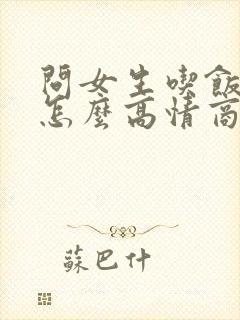 問女生喫飯
怎麼高情商
蘇巴什